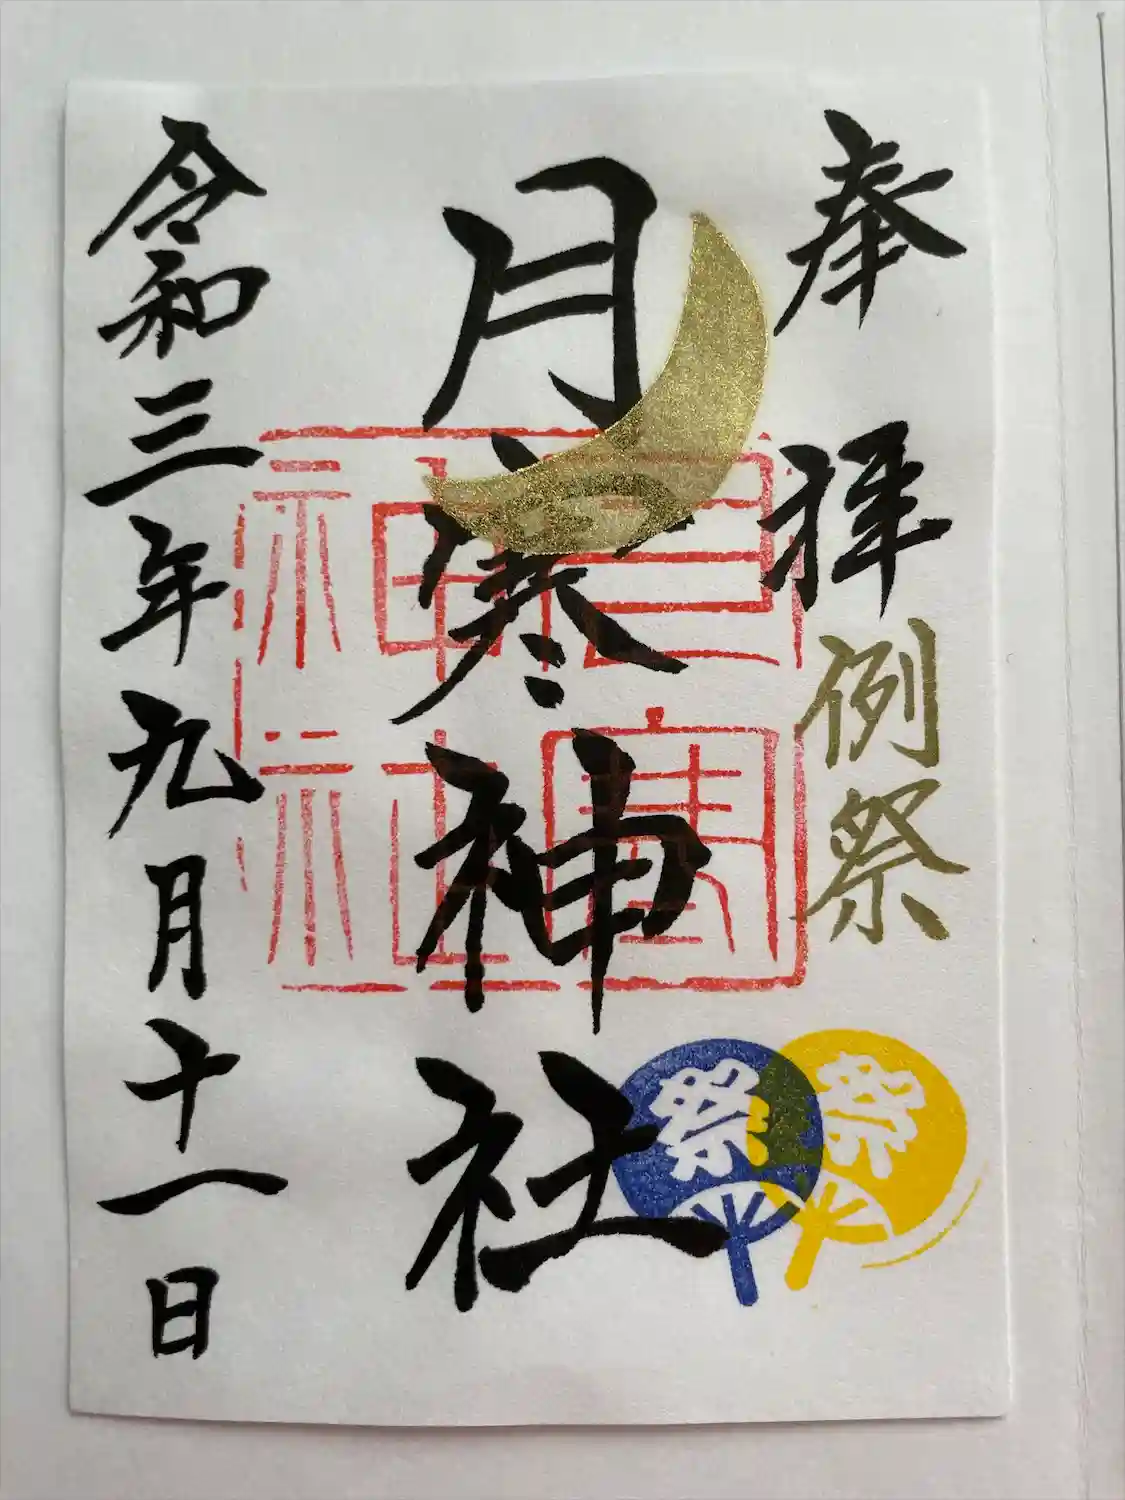 奉拝
例祭
祭
祭
月寒神社
月寒神社
令和三年九月十一日